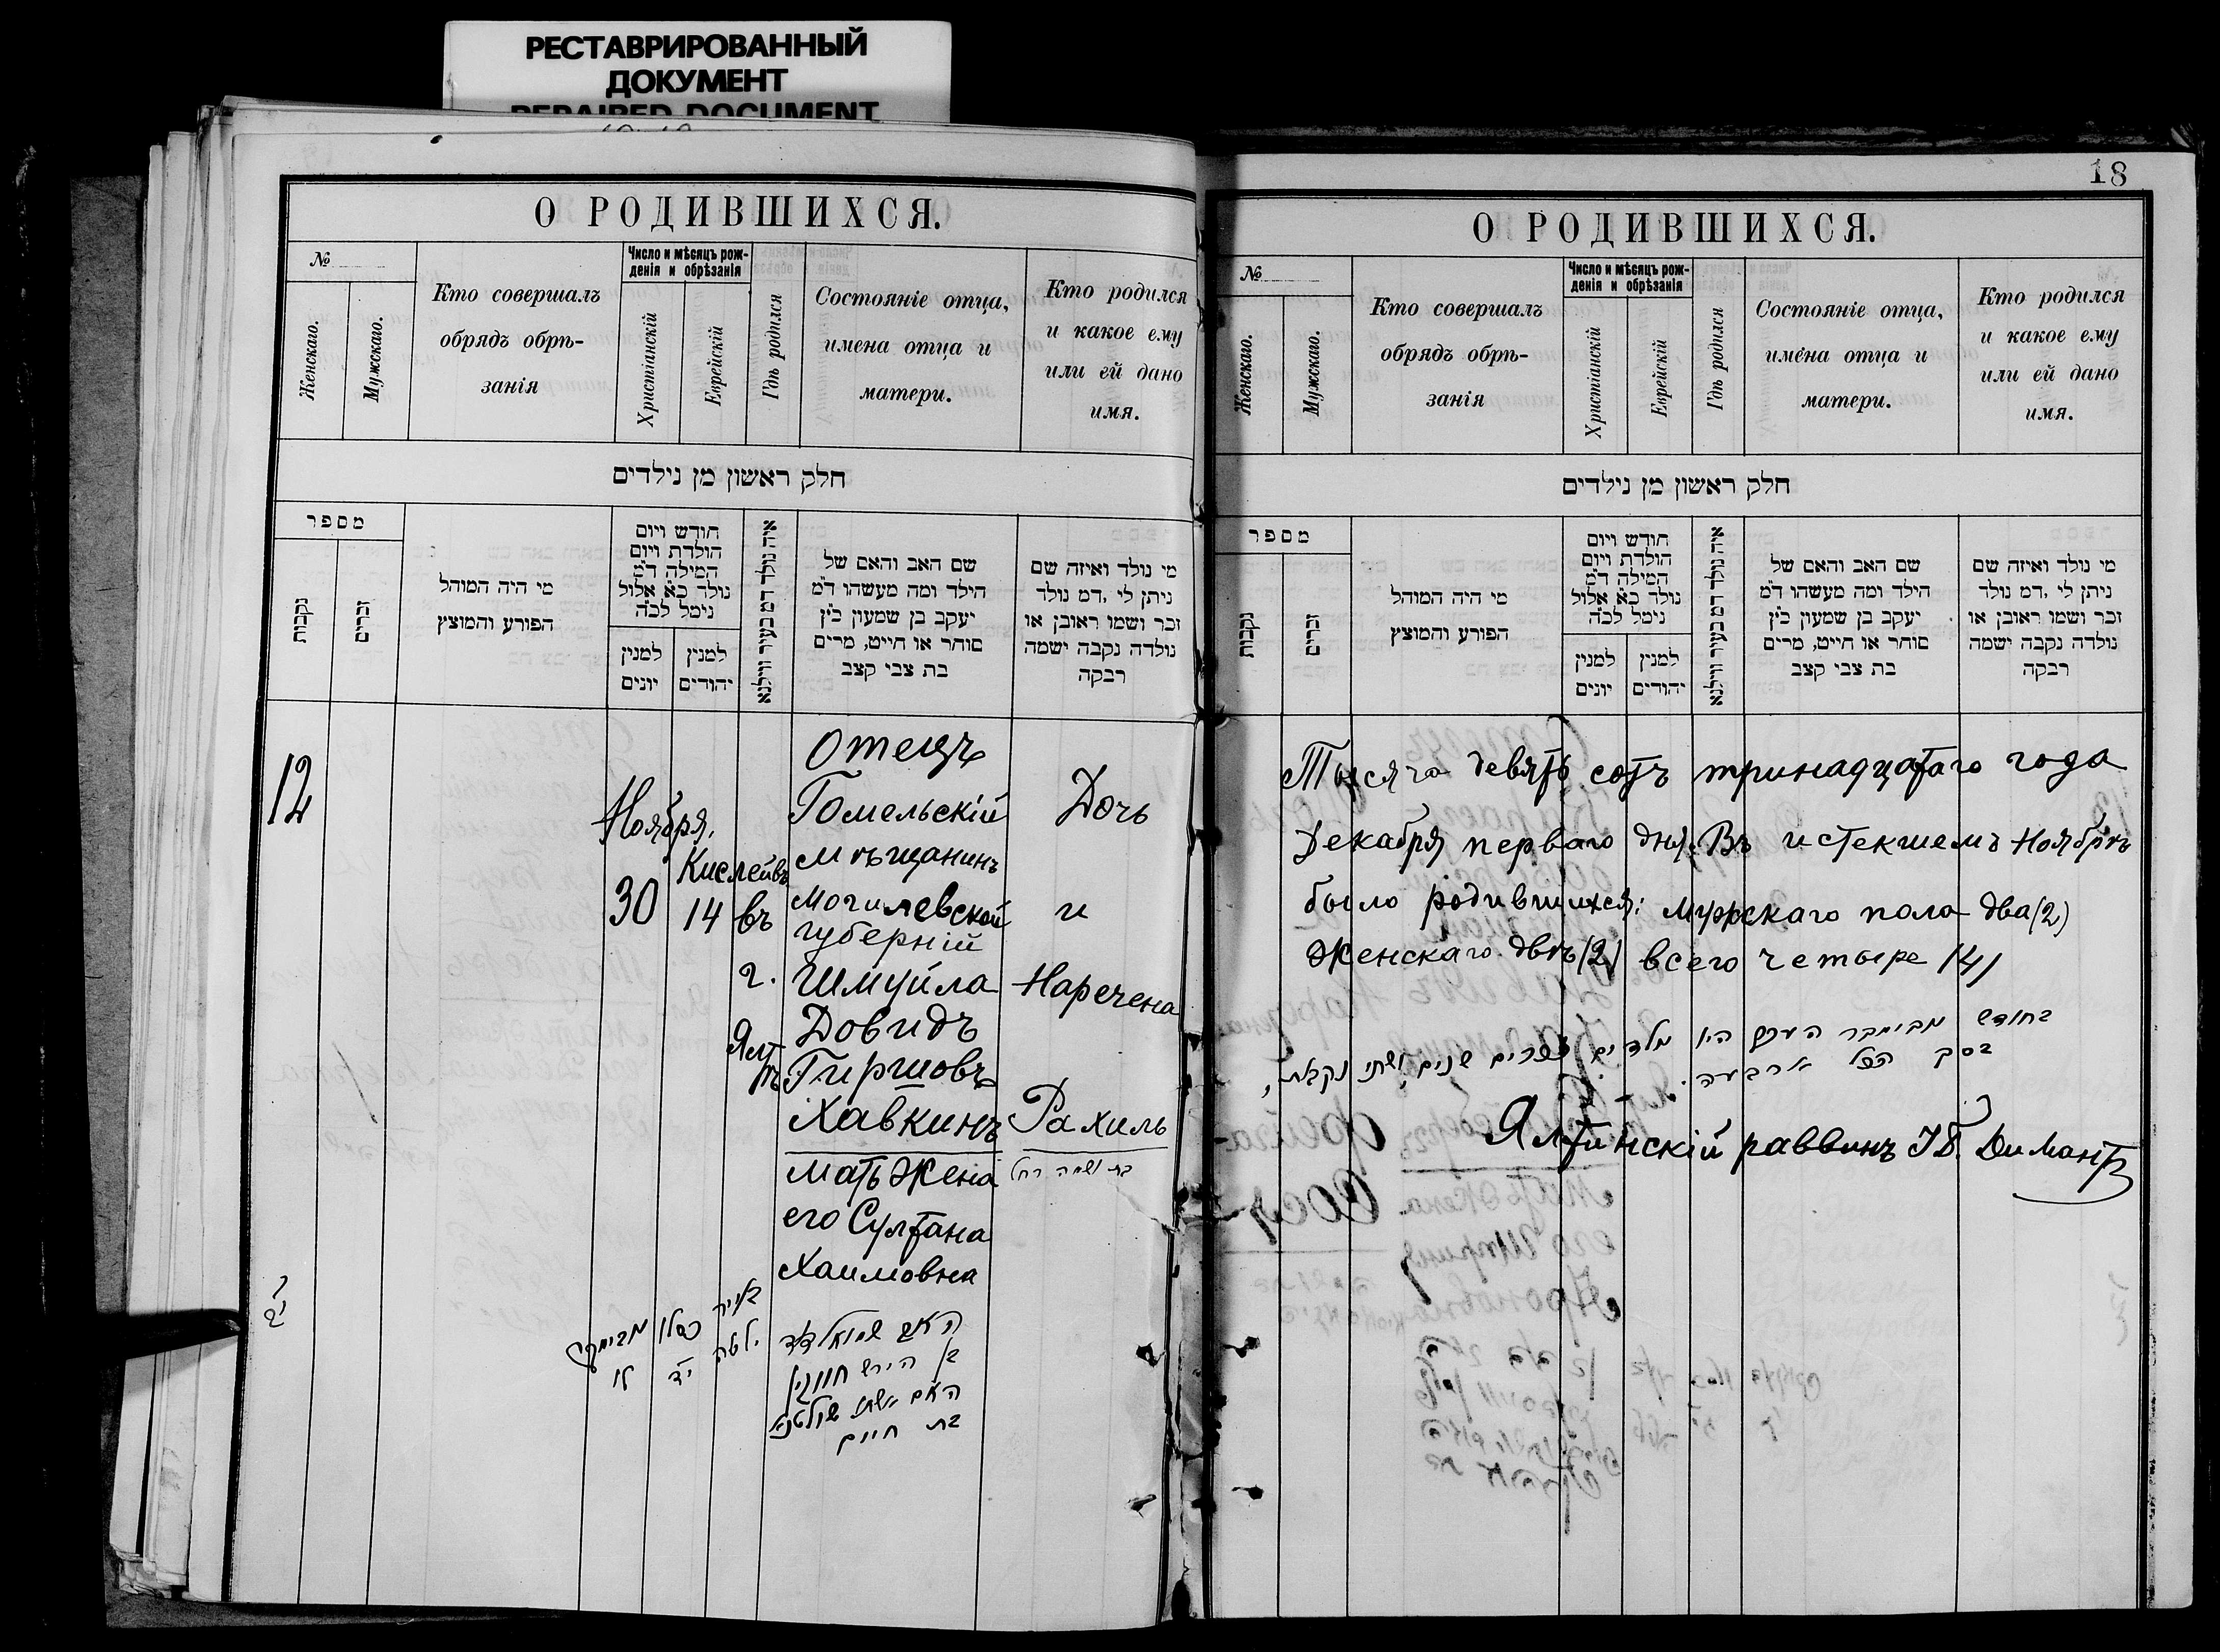 РЕСТАВРИРОВАННЫЙ
ДОКУМЕНТ
REPAIRED DOCUMENT
О РОДИВШИХСЯ.
№
Женскаго.
Мужскаго.
Кто совершалъ
обрядъ обрѣ-
занія
Число и мѣсяцъ рож-
денія и обрѣзанія
Христіанскій
Еврейскій
Гдѣ родился
Состояніе отца,
имена отца и
матери.
Кто родился
и какое ему
или ей дано
имя.
חלק ראשון מן נילדים
מספר
נקבות
זכרים
מי היה המוהל
הפורע והמוצץ
חודש ויום
הולדת ויום
המילה ד״מ
נולד כ״א אלול
נימל לכ״ה
למנין
יונים
למנין
יהודים
איה נולד דמ בעיר ווילנא
שם האב והאם של
הילד ומה מעשהו ד״מ
יעקב בן שמעון כ״ץ
סוחר או חייט, מרים
בת צבי קצב
מי נולד ואיזה שם
ניתן לי, דמ נולד
זכר ושמו ראובן או
נולדה נקבה ישמה
רבקה
12
Ноября
30
Кислейвъ
14
въ
г.
Ялтѣ
Отецъ
Гомельскій
мѣщанинъ
Могилевской
губерній
Шмуйла
Довидъ
Гиршовъ
Хавкинъ
Мать жена
его Султана
Хаимовна
Дочь
и
Наречена
Рахиль
בת ושמה רחל
יב
כסלו
יד
בעיר
ילטה
האב שמואל דוד
בן הירש חווקין
האם אשתו שולטנא
בת חיים
18
О РОДИВШИХСЯ.
№
Женскаго.
Мужскаго.
Кто совершалъ
обрядъ обрѣ-
занія
Число и мѣсяцъ рож-
денія и обрѣзанія
Христіанскій
Еврейскій
Гдѣ родился
Состояніе отца,
имена отца и
матери.
Кто родился
и какое ему
или ей дано
имя.
חלק ראשון מן נילדים
מספר
נקבות
זכרים
מי היה המוהל
הפורע והמוצץ
חודש ויום
הולדת ויום
המילה ד״מ
נולד כ״א אלול
נימל לכ״ה
למנין
יונים
למנין
יהודים
איה נולד דמ בעיר ווילנא
שם האב והאם של
הילד ומה מעשהו ד״מ
יעקב בן שמעון כ״ץ
סוחר או חייט, מרים
בת צבי קצב
מי נולד ואיזה שם
ניתן לי, דמ נולד
זכר ושמו ראובן או
נולדה נקבה ישמה
רבקה
Тысяча девять сотъ тринадцатаго года
Декабря перваго дня. Въ истекшемъ Ноябрѣ
было родившихся: мужскаго пола два (2)
Женскаго двѣ (2) всего четыре (4)
בחודש היו זכרים שנים ושתי נקבות,
הכל ארבעה.
Ялтинскій раввинъ І Б. Димантъ